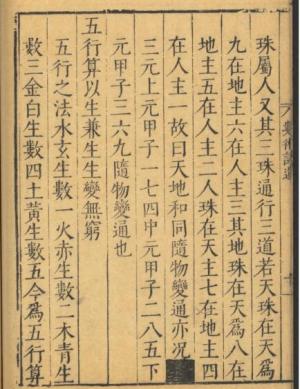 數術記遺
珠屬人又其三珠通行三道若天珠在天爲
九在地主六在人主三其地珠在天爲八在
地主五在人主二人珠在天主七在地主四
在人主一故曰天地和同隨物變通亦况
三元上元甲子一七四中元甲子二八五下
元甲子三六九隨物變通也
五行算以生兼生生變無窮
五行之法水玄生數一火赤生數二木青生
數三金白生數四土黃生數五今爲五行算